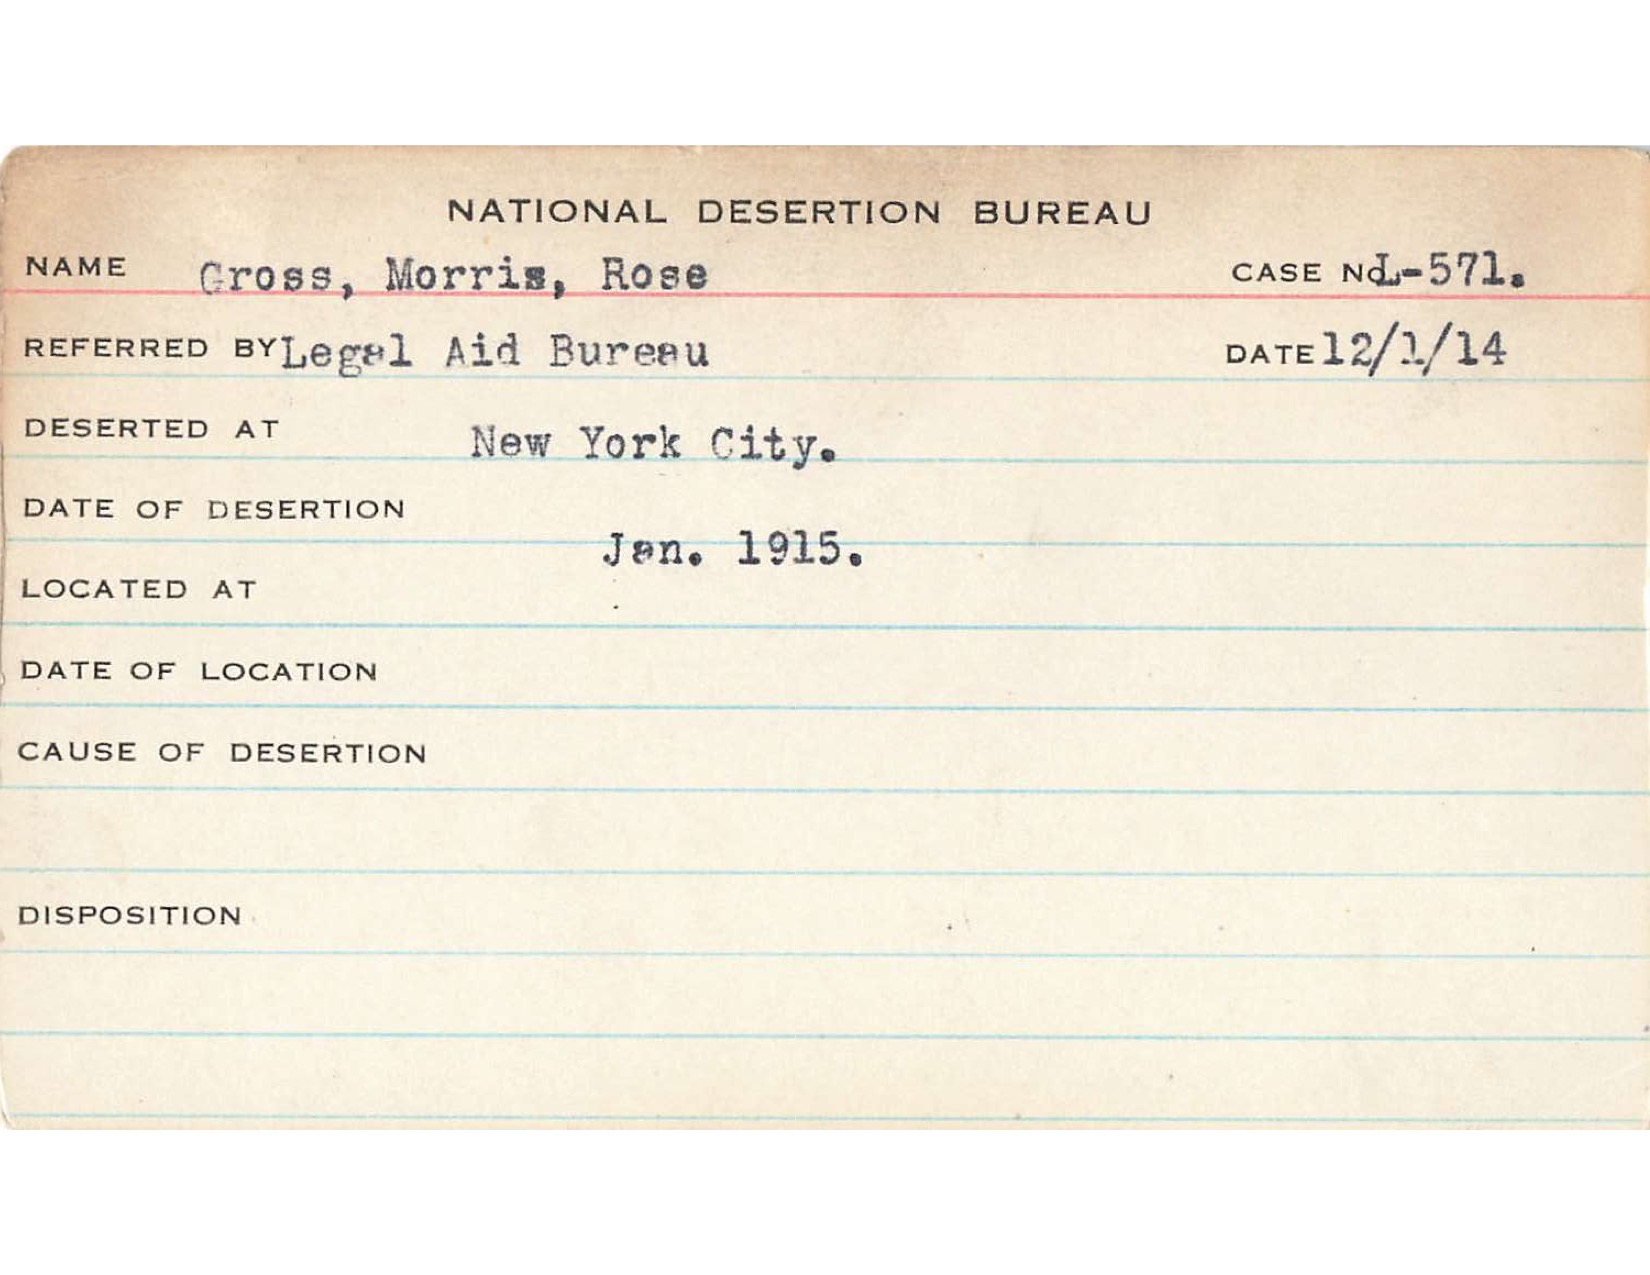 NATIONAL DESERTION BUREAU
NAME Gross, Morris, Rose CASE NO L-571.
REFERRED BY Legal Aid Bureau DATE 12/1/14
DESERTED AT New York City.
DATE OF DESERTION
Jan. 1915.
LOCATED AT
DATE OF LOCATION
CAUSE OF DESERTION
DISPOSITION